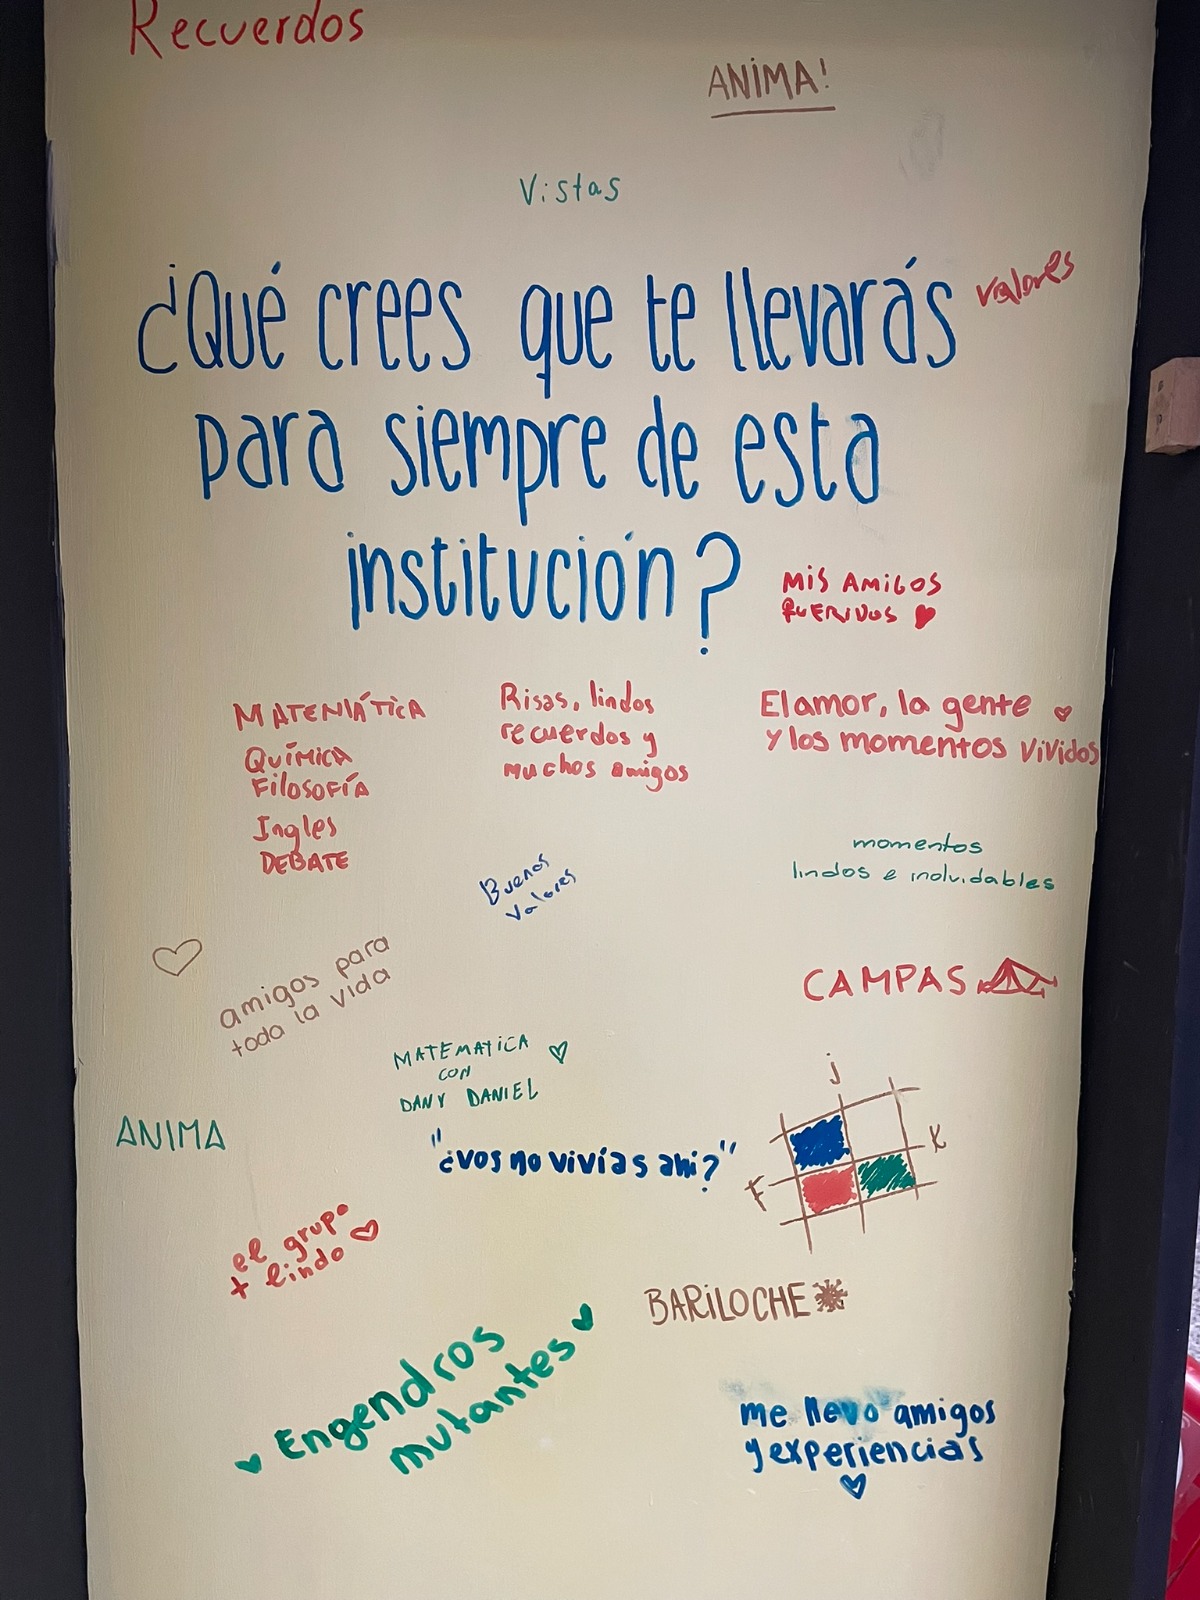 Recuerdos
ANIMA!
Vistas
¿Qué crees que te llevarás
valores
para siempre de esta
institución?
MIS AMIGOS
QUERIDOS
MATEMÁTICA
QUÍMICA
FILOSOFÍA
Ingles
DEBATE
Risas, lindos
recuerdos y
muchos amigos
El amor, la gente
y los momentos vividos
momentos
lindos e inolvidables
Buenos
valores
amigos para
toda la vida
CAMPAS
MATEMATICA
CON
DANY DANIEL
ANIMA
"¿vos no vivías ahi?"
j
K
F
el grupo
+ lindo
BARILOCHE
Engendros
mutantes
me llevo amigos
y experiencias